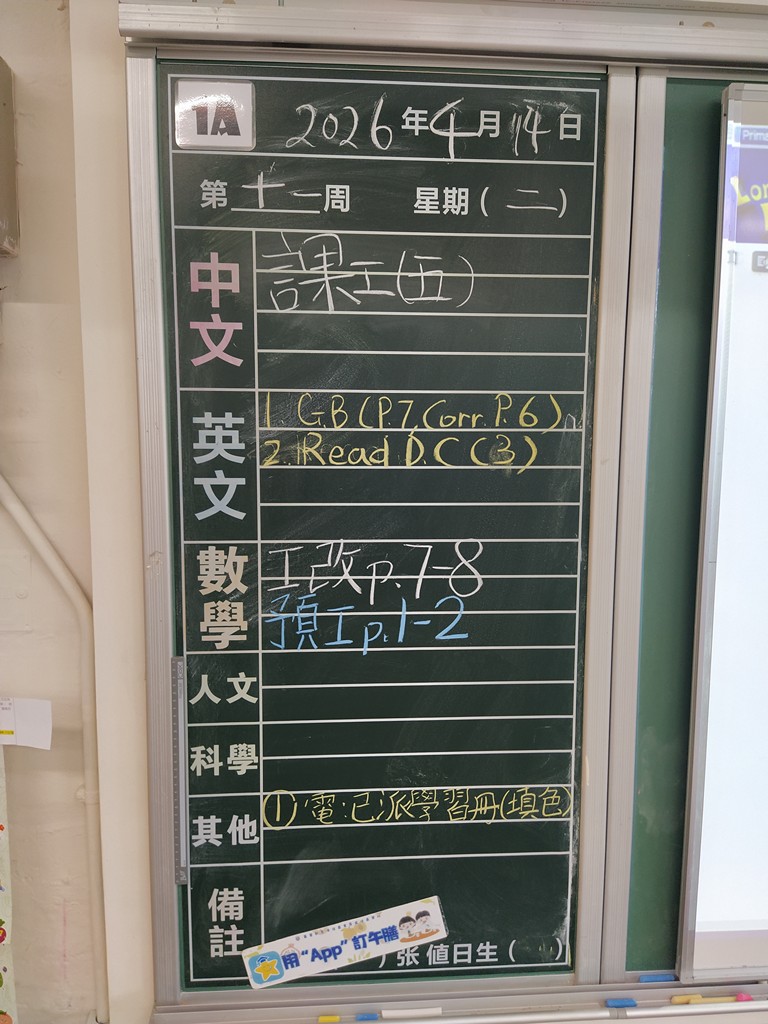 1A 2026年4月14日
第十一周 星期(二)
中文
課工(五)
英文
1. G.B (P.7, Corr. P.6)
2. Read D.C (3)
數學
工改p.7-8
預工p.1-2
人文
科學
其他
① 電:已派學習冊(填色)
備註
用“App”訂午膳
)张 值日生( )
Prima
Lon